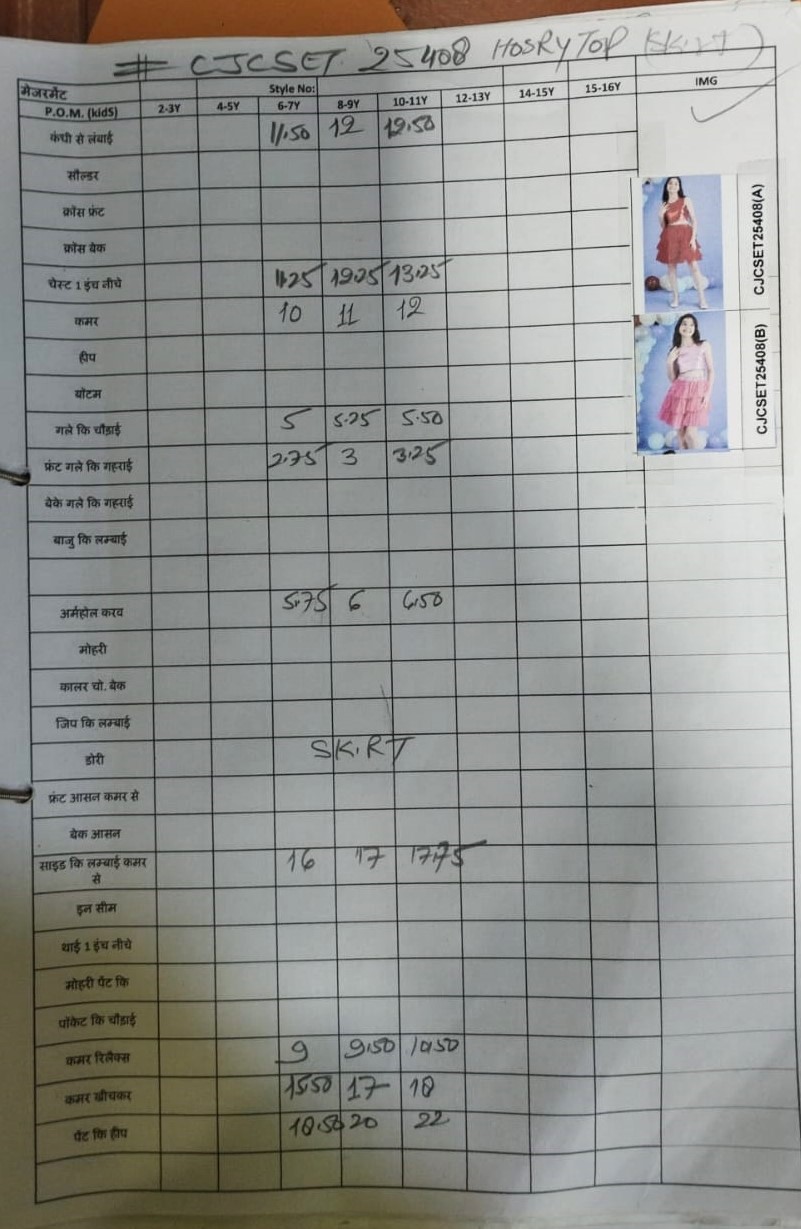 # CJCSET 25408 HOSRY TOP (SK.RT)
मेजरमेंट Style No: IMG
P.O.M. (kidS) 2-3Y 4-5Y 6-7Y 8-9Y 10-11Y 12-13Y 14-15Y 15-16Y
कंधी से लंबाई 11.50 12 12.50
सौल्डर
क्रोस फ्रंट
क्रोस बेक
चेस्ट 1 इंच नीचे 11.25 12.25 13.25
कमर 10 11 12
हीप
बोटम
गले कि चौड़ाई 5 5.25 5.50
फ्रंट गले कि गहराई 2.75 3 3.25
बेके गले कि गहराई
बाजु कि लम्बाई
अर्महोल करव 5.75 6 6.50
मोहरी
कालर चो. बेक
जिप कि लम्बाई
डोरी SK.RT
फ्रंट आसन कमर से
बेक आसन
साइड कि लम्बाई कमर से 16 17 17.75
इन सीम
थाई 1 इंच नीचे
मोहरी पेंट कि
पॉकेट कि चौड़ाई
कमर रिलैक्स 9 9.50 10.50
कमर खीचकर 15.50 17 18
पेंट कि हीप 18.50 20 22
CJCSET25408(A)
CJCSET25408(B)